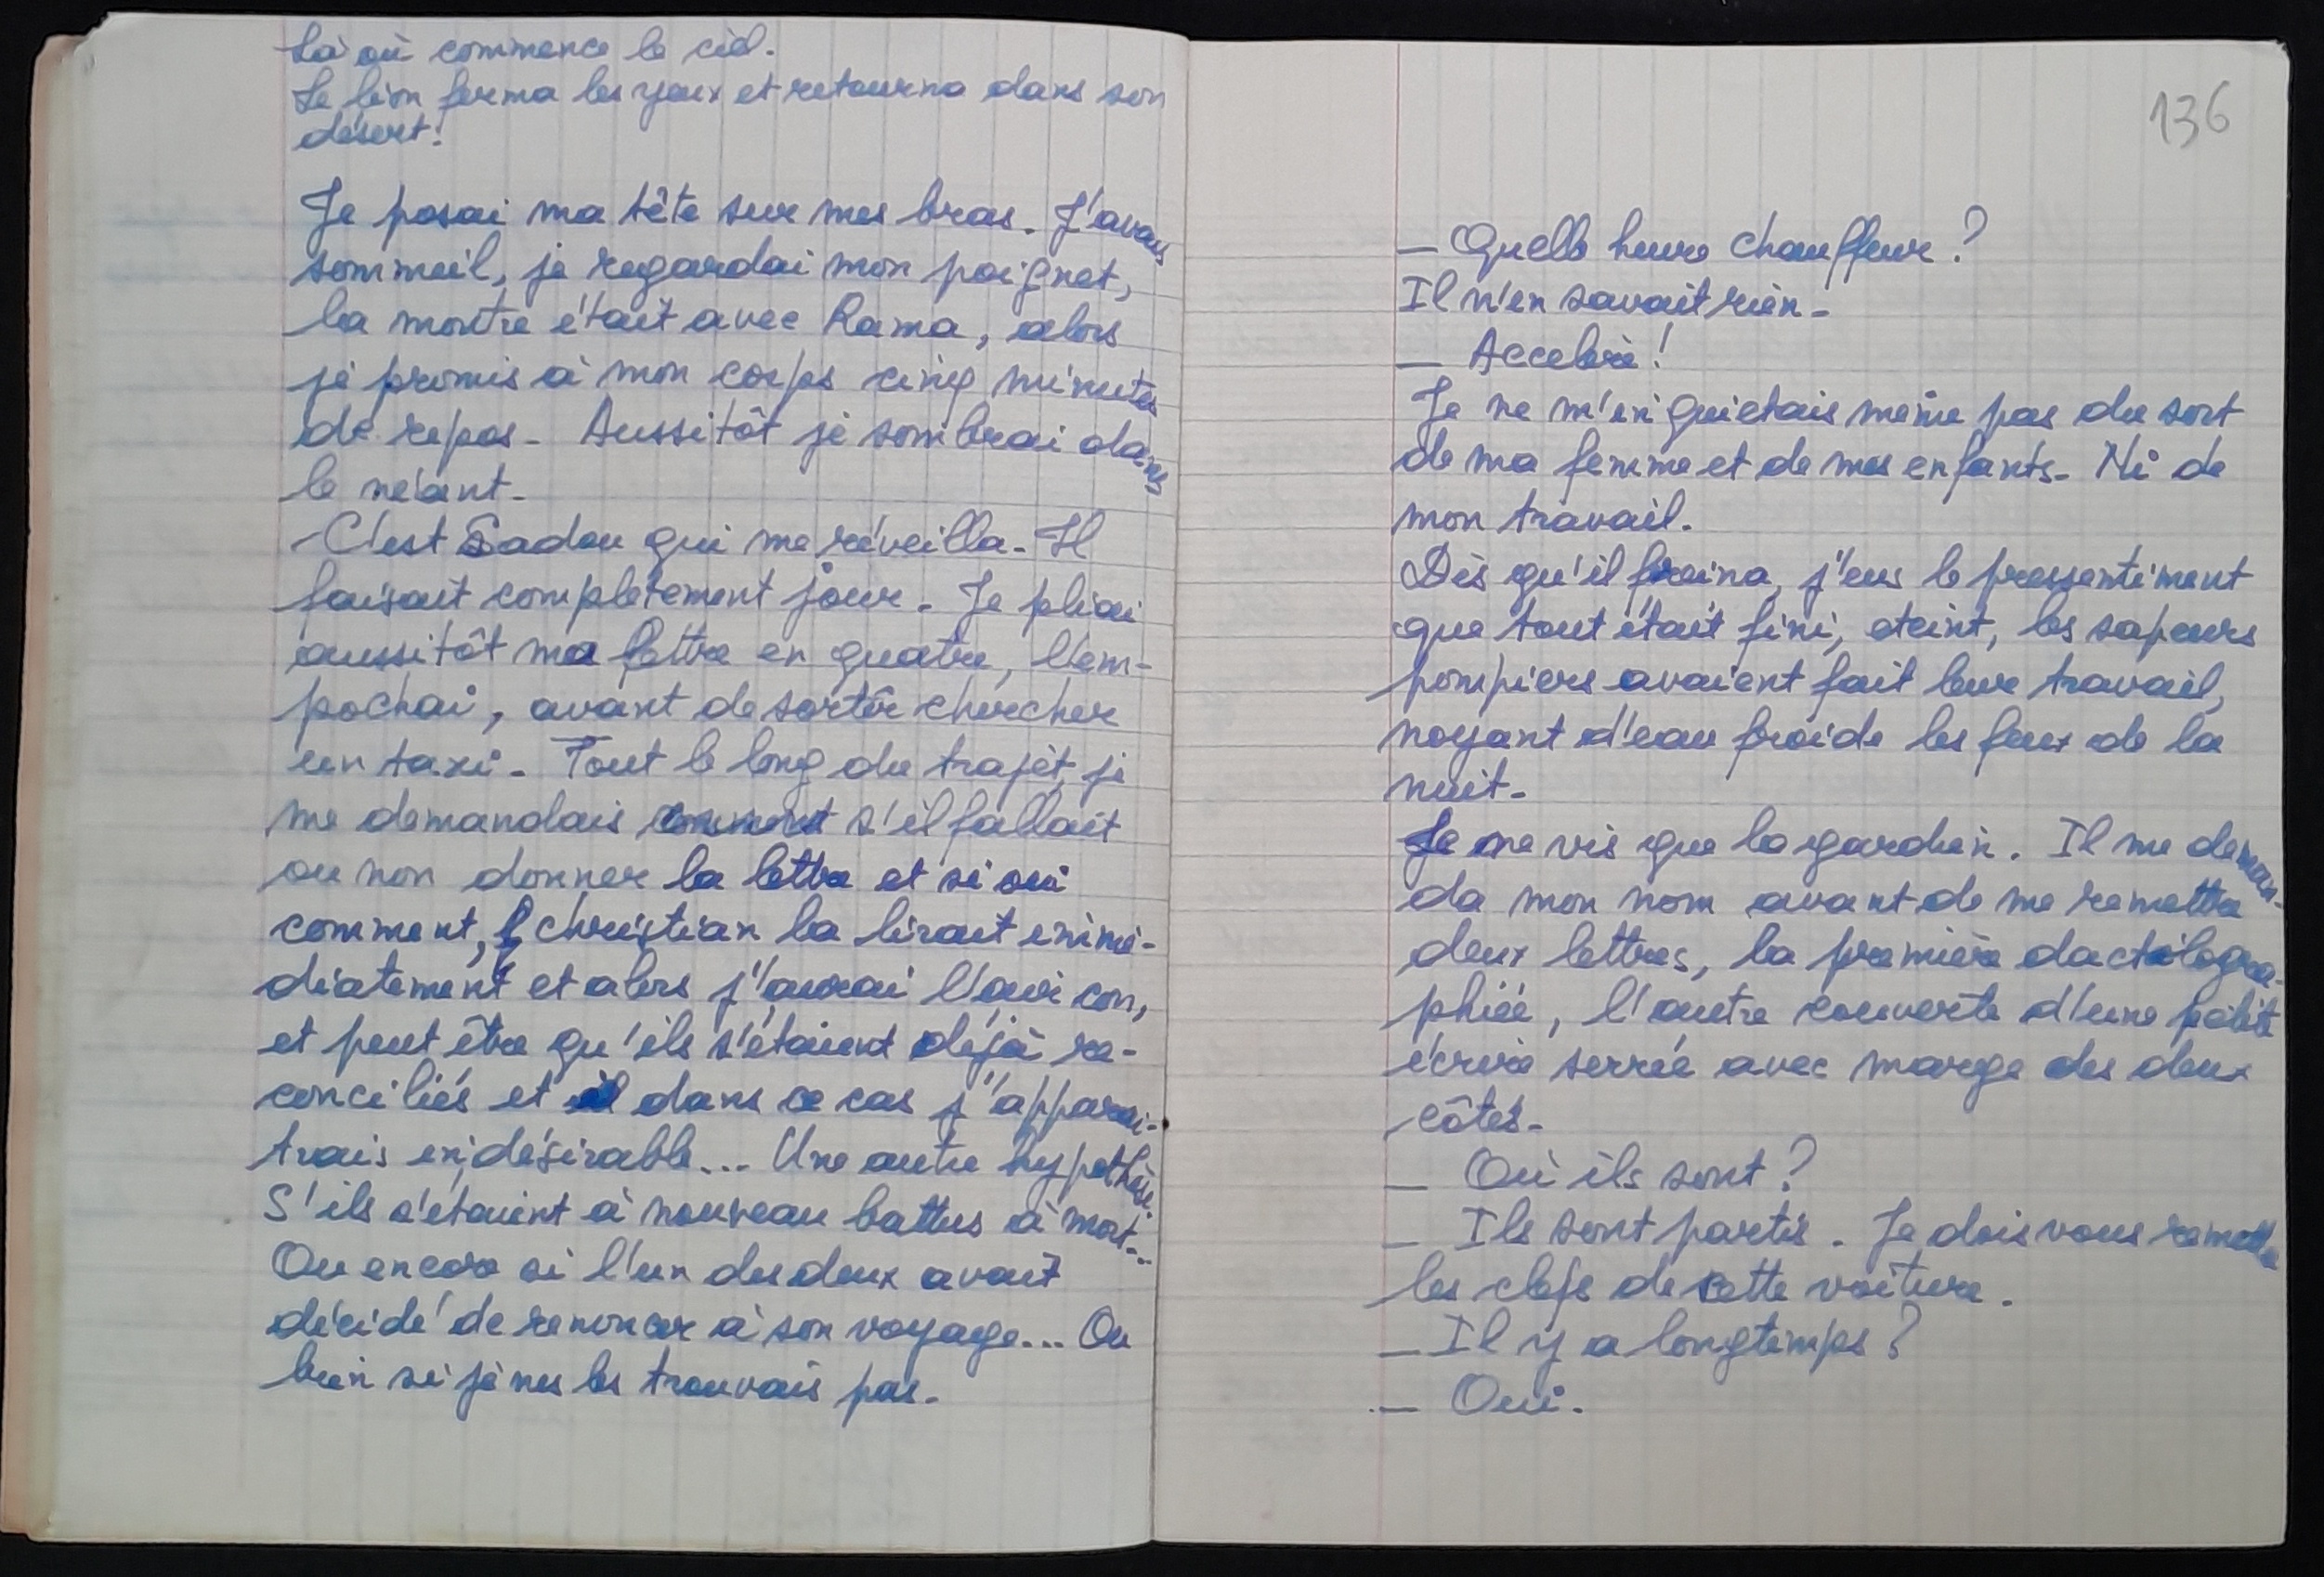 Là où commence le ciel.
Le lion ferma les yeux et retourna dans son
désert.
Je posai ma tête sur mes bras. J'avais
sommeil, je regardai mon poignet,
la montre était avec Rama, alors
je promis à mon corps cinq minutes
de repos. Aussitôt je sombrai dans
le néant.
- C'est Sadou qui me réveilla. Il
faisait complètement jour. Je pliai
aussitôt ma lettre en quatre, l'em-
pochai, avant de sortir chercher
un taxi. Tout le long du trajet, je
me demandais comment s'il fallait
ou non donner la lettre et si oui
comment, christian la lirait immé-
diatement et alors j'aurai l'air con,
et peut être qu'ils s'étaient déjà ré-
conciliés et il dans ce cas j'apparai-
trais indésirable... Une autre hypothèse.
S'ils s'étaient à nouveau battus à mort...
Ou encore si l'un des deux avait
décidé de renoncer à son voyage... Ou
bien si je nes les trouvais pas.
136
— Quelle heure chauffeur ?
Il n'en savait rien.
— Accelère !
Je ne m'inquietais même pas du sort
de ma femme et de mes enfants. Ni de
mon travail.
Dès qu'il freina, j'eus le pressentiment
que tout était fini, eteint, les sapeurs
pompiers avaient fait leur travail,
noyant d'eau froide les feux de la
nuit.
Je ne vis que le gardien. Il me deman-
da mon nom avant de me remettre
deux lettres, la première dactilogra-
phiée, l'autre couverte d'une petite
écrire serrée avec marge des deux
côtés.
— Où ils sont ?
— Ils sont partis. Je dois vous remettre
les clefs de cette voiture.
— Il y a longtemps ?
— Oui.